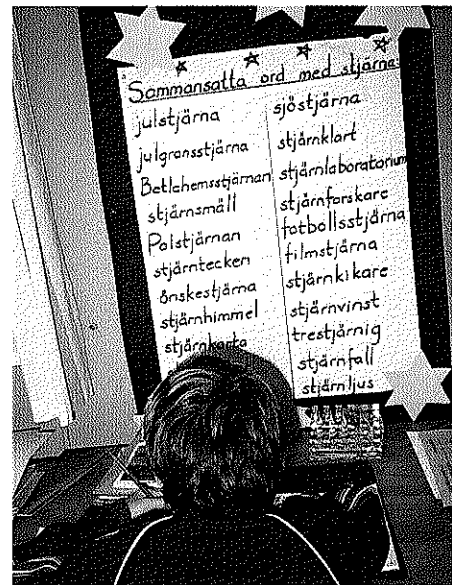 Sammansatta ord med stjärna:
julstjärna
julgransstjärna
Betlehemsstjärnan
stjärnsmäll
Polstjärnan
stjärntecken
önskestjärna
stjärnhimmel
stjärnkarta
sjöstjärna
stjärnklart
stjärnlaboratorium
stjärnforskare
fotbollsstjärna
filmstjärna
stjärnkikare
stjärnvinst
trestjärnig
stjärnfall
stjärnljus